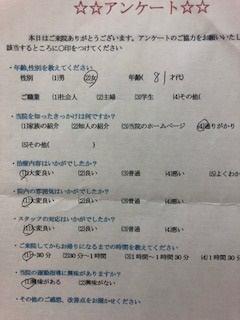 ☆☆アンケート☆☆
本日はご来院ありがとうございます。アンケートのご協力をお願いいた
該当するところに○印をつけてください
・年齢,性別を教えてください
性別 (1)男 (2)女 年齢( 81 才代)
ご職業 (1)社会人 (2)主婦 (3)学生 (4)その他(
・当院を知ったきっかけは何ですか?
(1)家族の紹介 (2)知人の紹介 (3)当院のホームページ (4)通りがかり
(5)その他( )
・治療内容はいかがでしたか?
(1)大変良い (2)良い (3)普通 (4)悪い (5)よくわか
・院内の雰囲気はいかがでしたか?
(1)大変良い (2)良い (3)普通 (4)悪い
・スタッフの対応はいかがでしたか?
(1)大変良い (2)良い (3)普通 (4)悪い
・ご来院してからお帰りになるまでの時間を教えてください
(1)~30分 (2)30分~1時間 (3)1時間~1時間30分 (4)1時間30
・当院の運動指導に興味がありますか?
(1)興味がある (2)興味がない
・その他のご感想、改善点をお聞かせください